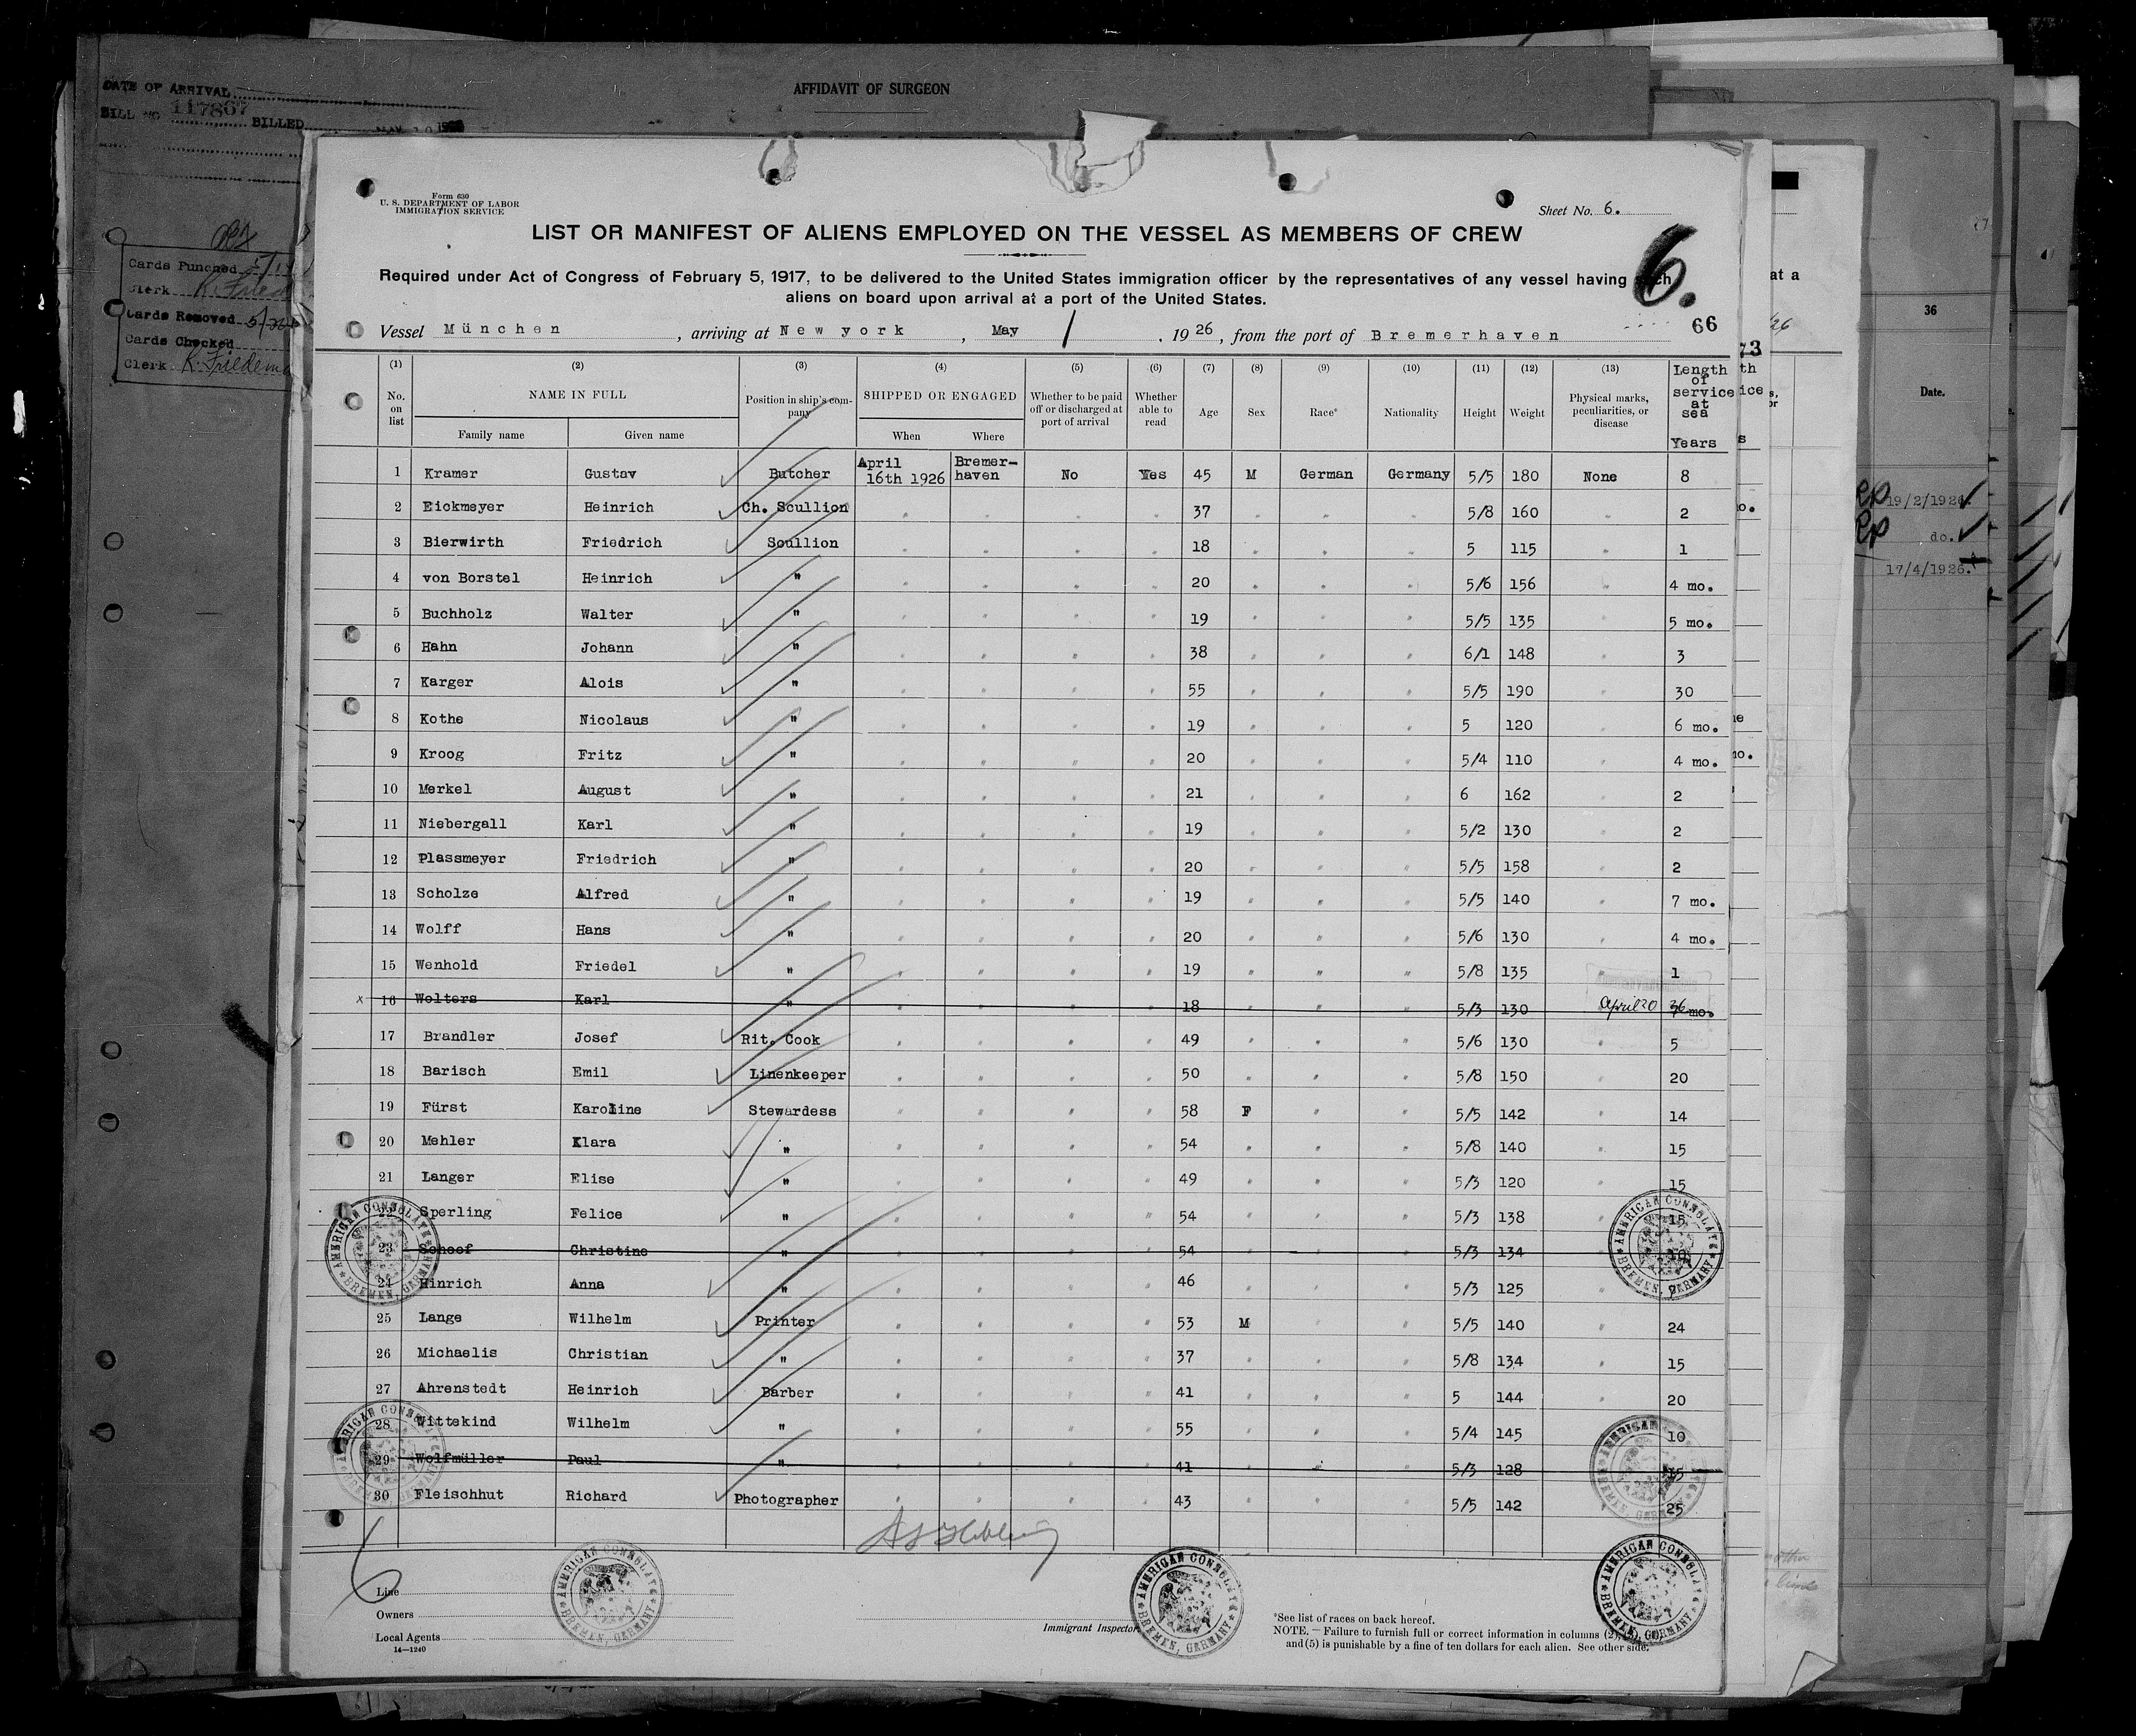 DATE OF ARRIVAL
BILL NO 117867 BILLED
AFFIDAVIT OF SURGEON
Cards Punched
Clerk
Cards Removed
Cards Checked
Clerk
Form 630
U. S. DEPARTMENT OF LABOR
IMMIGRATION SERVICE
Sheet No. 6.
LIST OR MANIFEST OF ALIENS EMPLOYED ON THE VESSEL AS MEMBERS OF CREW
6.
Required under Act of Congress of February 5, 1917, to be delivered to the United States immigration officer by the representatives of any vessel having such
aliens on board upon arrival at a port of the United States.
66
Vessel München , arriving at New york , May 1 , 1926, from the port of Bremerhaven
(1) (2) (3) (4) (5) (6) (7) (8) (9) (10) (11) (12) (13)
No. on list NAME IN FULL Position in ship's company SHIPPED OR ENGAGED Whether to be paid off or discharged at port of arrival Whether able to read Age Sex Race* Nationality Height Weight Physical marks, peculiarities, or disease Length of service at sea
Family name Given name When Where Years
1 Kramer Gustav Butcher April 16th 1926 Bremerhaven No Yes 45 M German Germany 5/5 180 None 8
2 Eickmeyer Heinrich Ch. Scullion " " " " 37 " " " 5/8 160 " 2
3 Bierwirth Friedrich Scullion " " " " 18 " " " 5 115 " 1
4 von Borstel Heinrich " " " " " 20 " " " 5/6 156 " 4 mo.
5 Buchholz Walter " " " " " 19 " " " 5/5 135 " 5 mo.
6 Hahn Johann " " " " " 38 " " " 6/1 148 " 3
7 Karger Alois " " " " " 55 " " " 5/5 190 " 30
8 Kothe Nicolaus " " " " " 19 " " " 5 120 " 6 mo.
9 Kroog Fritz " " " " " 20 " " " 5/4 110 " 4 mo.
10 Merkel August " " " " " 21 " " " 6 162 " 2
11 Niebergall Karl " " " " " 19 " " " 5/2 130 " 2
12 Plassmeyer Friedrich " " " " " 20 " " " 5/5 158 " 2
13 Scholze Alfred " " " " " 19 " " " 5/5 140 " 7 mo.
14 Wolff Hans " " " " " 20 " " " 5/6 130 " 4 mo.
15 Wenhold Friedel " " " " " 19 " " " 5/8 135 " 1
x 16 Wolters Karl " " " " " 18 " " " 5/3 130 April 20 26 mo.
17 Brandler Josef Rit. Cook " " " " 49 " " " 5/6 130 " 5
18 Barisch Emil Linenkeeper " " " " 50 " " " 5/8 150 " 20
19 Fürst Karoline Stewardess " " " " 58 F " " 5/5 142 " 14
20 Mehler Klara " " " " " 54 " " " 5/8 140 " 15
21 Langer Elise " " " " " 49 " " " 5/3 120 " 15
22 Sperling Felice " " " " " 54 " " " 5/3 138 " 15
23 Schoof Christine " " " " " 54 " " " 5/3 134 " 10
24 Hinrich Anna " " " " " 46 " " " 5/3 125 "
25 Lange Wilhelm Printer " " " " 53 M " " 5/5 140 " 24
26 Michaelis Christian " " " " " 37 " " " 5/8 134 " 15
27 Ahrenstedt Heinrich Barber " " " " 41 " " " 5 144 " 20
28 Wittekind Wilhelm " " " " " 55 " " " 5/4 145 " 10
29 Wolfmüller Paul " " " " " 41 " " " 5/3 128 15
30 Fleischhut Richard Photographer " " " " 43 " " " 5/5 142 25
AMERICAN CONSULATE BREMEN, GERMANY
AMERICAN CONSULATE BREMEN, GERMANY
AMERICAN CONSULATE BREMEN, GERMANY
AMERICAN CONSULATE BREMEN, GERMANY
AMERICAN CONSULATE BREMEN, GERMANY
AMERICAN CONSULATE BREMEN, GERMANY
AMERICAN CONSULATE BREMEN, GERMANY
6
Line
Owners
Local Agents
14—1240
Immigrant Inspector.
*See list of races on back hereof.
NOTE. — Failure to furnish full or correct information in columns (2), (3), (4),
and (5) is punishable by a fine of ten dollars for each alien. See other side.
at a
36
73
Date.
19/2/1926.
do.
17/4/1926.